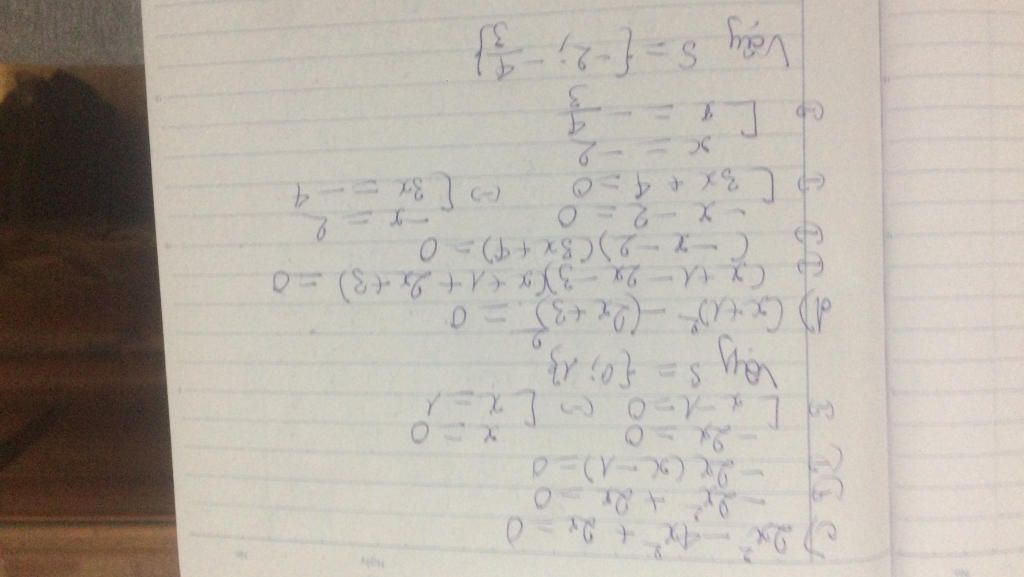 c) 2x² - 4x² + 2x = 0
⇔ - 2x² + 2x = 0
⇔ - 2x(x - 1) = 0
⇔ [ - 2x = 0 x - 1 = 0 ⇔ [ x = 0 x = 1
Vậy S = {0; 1}
d) (x + 1)² - (2x + 3)² = 0
⇔ (x + 1 - 2x - 3)(x + 1 + 2x + 3) = 0
⇔ (- x - 2)(3x + 4) = 0
⇔ [ - x - 2 = 0 3x + 4 = 0 ⇔ [ - x = 2 3x = - 4
⇔ [ x = - 2 x = - 4/3
Vậy S = {- 2; - 4/3}